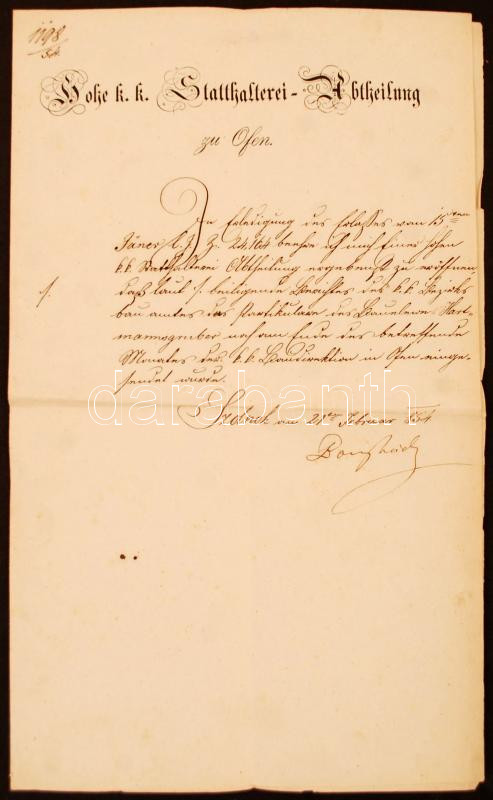 1198
54
Hohe k. k. Statthalterei-Abtheilung
zu Ofen.
In Erledigung des Erlasses vom 15ten
Jäner l. J. Z. 24.164 beehre ich mich Einer hohen
k.k. Statthalterei Abtheilung ergebenst zu eröffnen
daß laut /. beiliegenden Berichtes des k.k. Bezirks
bauamtes das Partikulare des Baueleven Hart-
mannsgruber noch am Ende des betreffenden
Monates der k.k. Baudirektion in Ofen einge-
sendet wurde.
/.
am 21ten Februar 854
darabanth